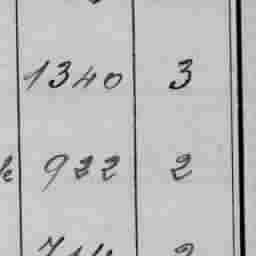 1340 3
922 2